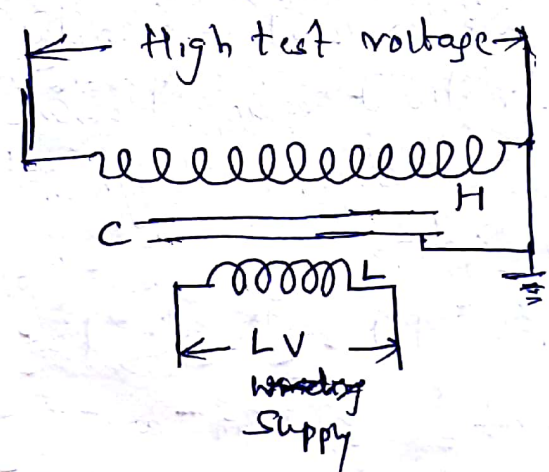 High test voltage
H
C
L
LV
Supply